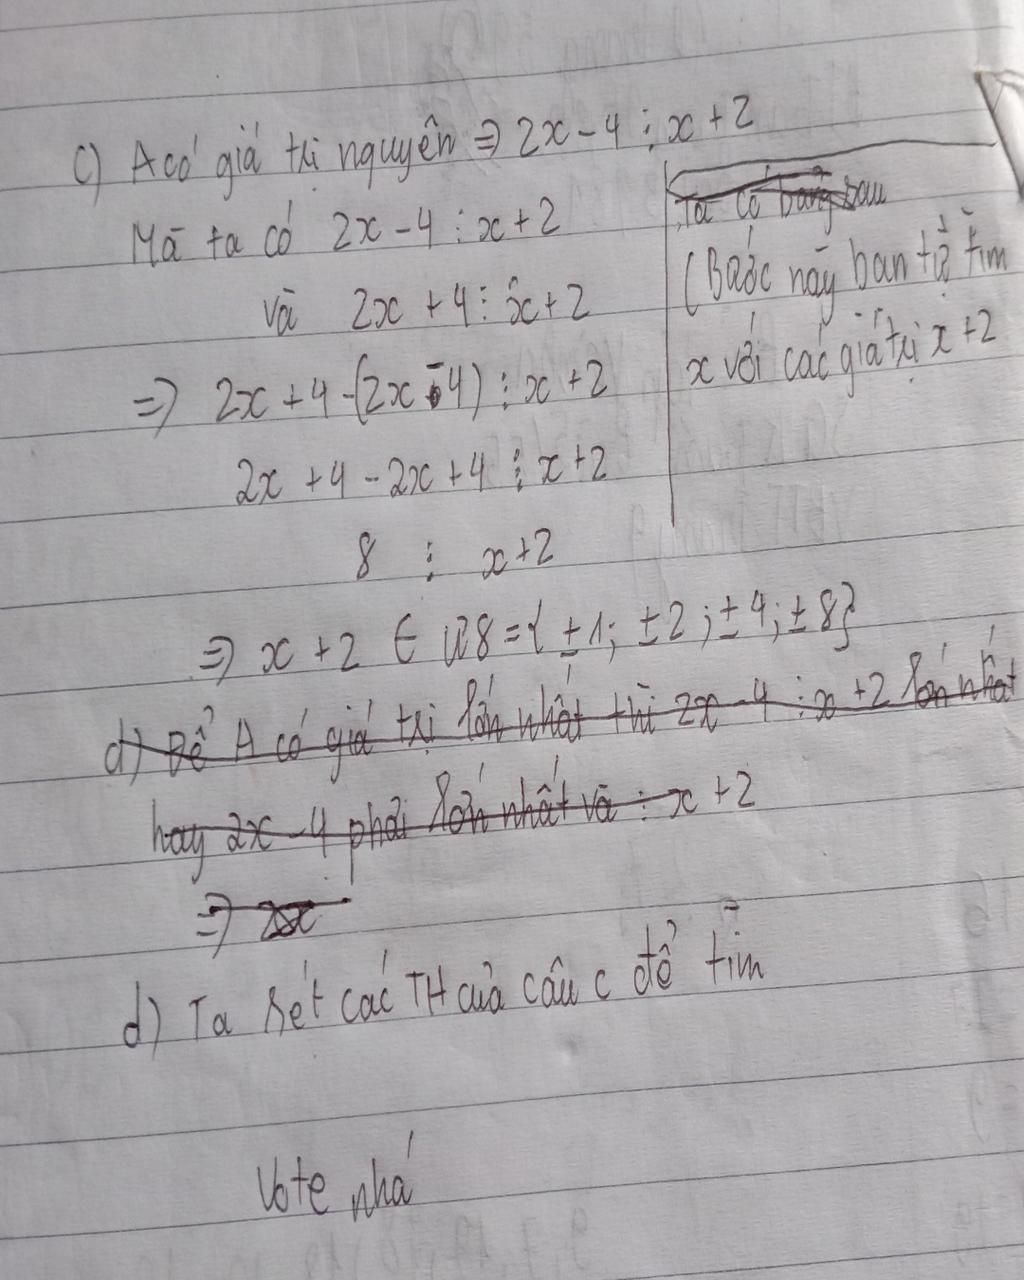 c) A có giá trị nguyên => 2x - 4 ⋮ x + 2
Mà ta có 2x - 4 ⋮ x + 2
và 2x + 4 ⋮ x + 2
=> 2x + 4 - (2x - 4) ⋮ x + 2
2x + 4 - 2x + 4 ⋮ x + 2
8 ⋮ x + 2
=> x + 2 ∈ Ư8 = { ±1; ±2; ±4; ±8}
Ta có bảng sau
(Bước này bạn tự tìm
x với các giá trị x + 2
d) Để A có giá trị lớn nhất thì 2x - 4 ⋮ x + 2 lớn nhất
hay 2x - 4 phải lớn nhất và ⋮ x + 2
=> 2x
d) Ta xét các TH của câu c để tìm
Vote nhá